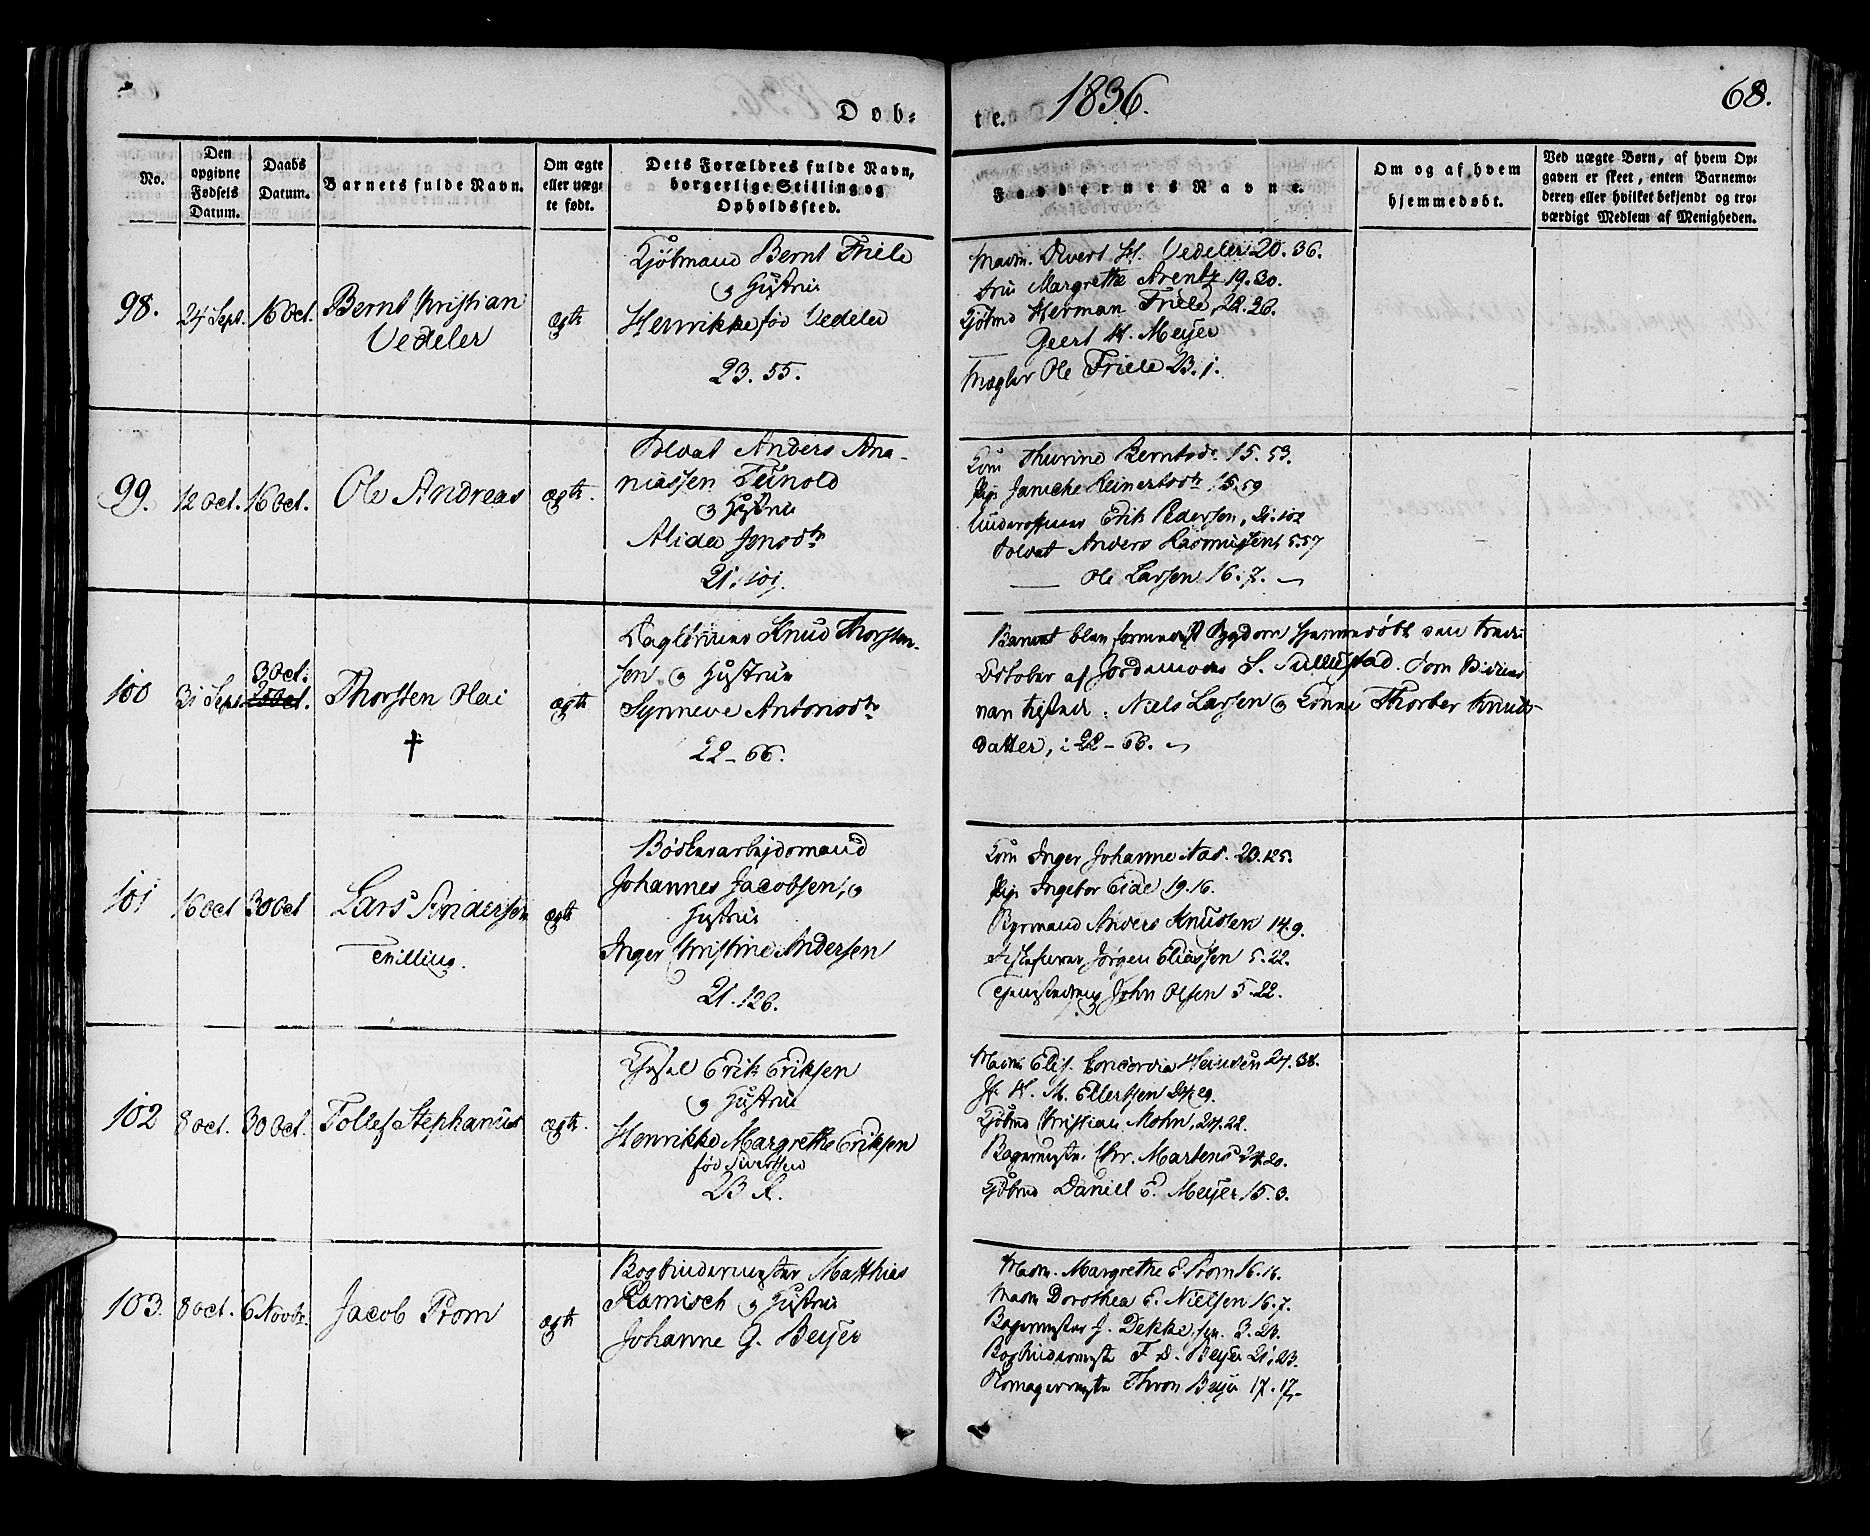 Døb=
te. 1836.
68.
No.
Den opgivne Fødsels Datum.
Daabs Datum.
Barnets fulde Navn.
Om ægte eller uæg- te født.
Dets Forældres fulde Navn, borgerlige Stilling og Opholdssted.
Faddernes Navne.
Om og af hvem hjemmedøbt.
Ved uægte Børn, af hvem Op- gaven er skeet, enten Barnemo- deren eller hvilket bekjendt og tro- værdigt Medlem af Menigheden.
98. 24 Sept. 16 Oct. Bernt Christian
Vedeler
ægte
Kjøbmand Bernt Friele
og Hustrue
Henrikke fød Vedeler
23. 55.
Madm. H. Vedeler 20. 36.
Margrethe Arentz 19. 30.
Kjøbmd Herman Friele, 22. 26.
Geert H. Meyer
Mægler Ole Friele 23. 1.
99. 12 Oct. 16 Oct. Ole Andreas ægte.
Soldat Anders Ana-
niassen
og Hustrue
Alida Jonsdtr
21. 101.
Kone Thurine Berntsdr. 15. 53.
Pige Janicke Reinertsdtr 15. 59
Underofficeer Erik Pedersen, 21. 102
Soldat Anders Rasmussen 5. 57
Ole Larsen 16. 7.
100 Sept. 3 Oct.
Thorsten Olai
†
ægte
Daglønner Knud Thorsten-
sen og Hustrue
Synneve Antonsdtr
22 - 66.
Barnet blev formedelst Sygdom hjemmedøbt den tredie
October af Jordemoder S. Som
tilstede: Niels Larsen og Konne Knuds-
datter, i 22 - 66.
101 16 Oct 30 Oct Lars Andersen
Tvilling.
ægte
Bødkerarbejdsmand
Johannes Jacobsen, og
Hustrue
Inger Christine Andersen
21. 126.
Kone Inger Johanne Aas. 23. 125.
Pige Ingebor Eide 19. 16.
Byemand Anders Knudsen 14. 9.
Jørgen Eliassen 5. 22.
Tjenestedreng John Olsen 5. 22.
102 8 Oct. 30 Oct. Tollef Stephanus ægte.
Erik Eriksen
og Hustrue
Henrikke Margrethe Eriksen
fød Sivertsen
23 R.
Madm Elis. Concordia 24. 38.
H. M. Ellertsen 24. 29.
Kjøbmd Christian Mohn, 24. 22.
Bagermestr. Chr. Martens 24. 20.
Kjøbmd Daniel C. Meyer 15. 3.
103. 8 Oct. 6 Novbr. Jacob Prom ægte
Bogbindermester Matthias
Ramisch og Hustrue
Johanne G. Beyer
Madm. Margrethe E Prom 16. 16.
Madm Dorothea E. Nielsen 16. 7.
Bagermester J. Dekke, sen. 3. 24.
Bogbindermestr F. D. Beyer 21. 23.
Beyer 17. 17.